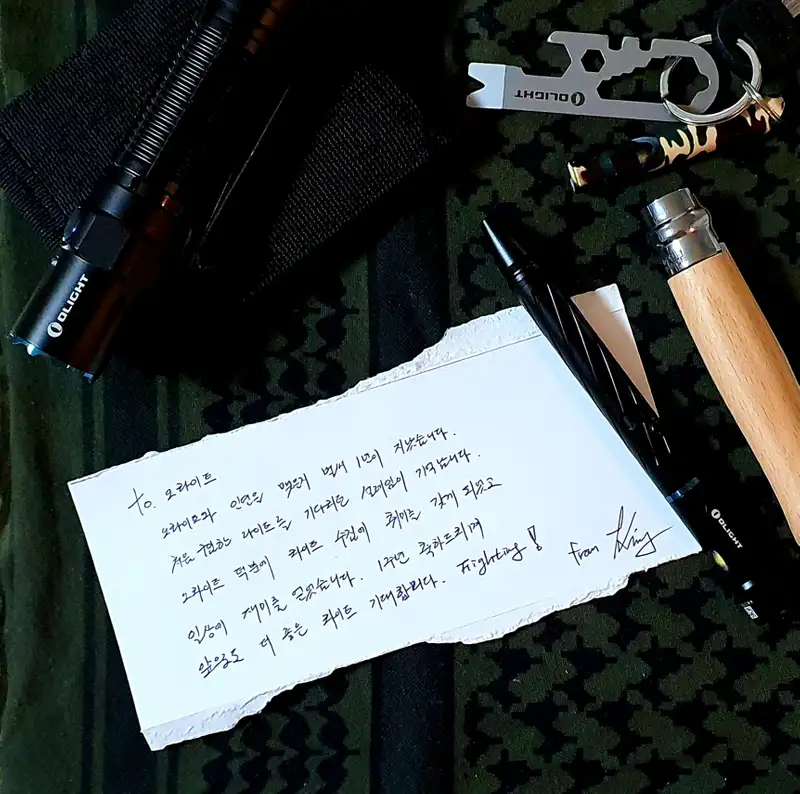 OLIGHT
OLIGHT
to. 오라이트
오라이트와 인연을 맺은지 벌써 1년이 지났습니다.
처음 접한 라이트를 기다리던 설레임이 기억납니다.
오라이트 덕분에 라이트 수집이 취미를 갖게 되었고
일상이 재미를 얻었습니다. 1주년 축하드리며
앞으로도 더 좋은 라이트 기대합니다. Fighting!
From King
OLIGHT